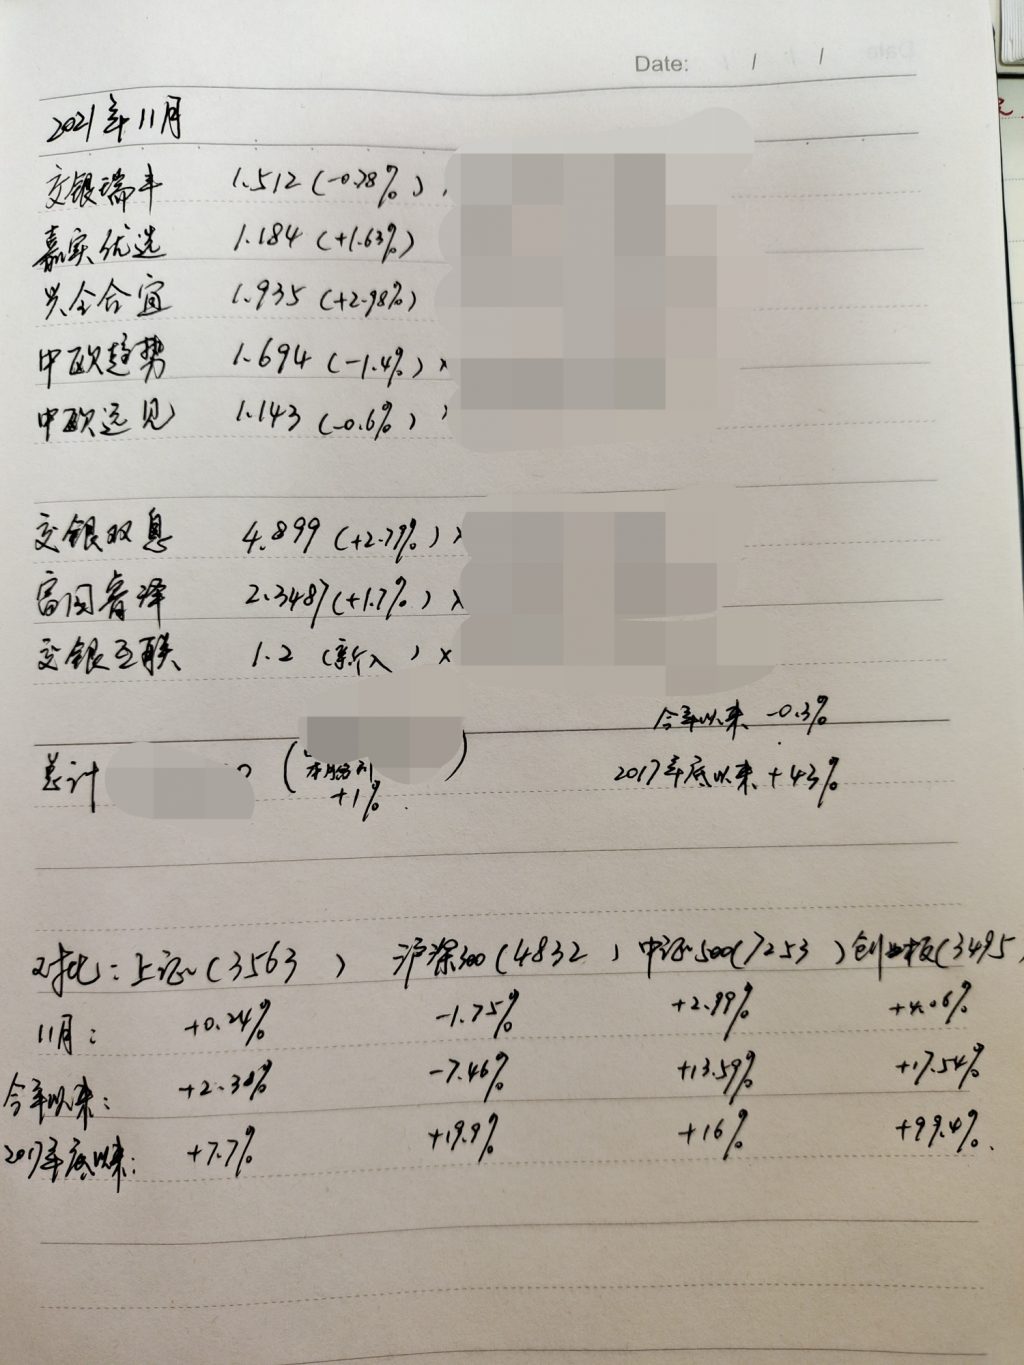 Date: / /
2021年11月
交银瑞丰 1.512 (-0.78%)
嘉实优选 1.184 (+1.63%)
兴全合宜 1.935 (+2.98%)
中欧趋势 1.694 (-1.4%) x
中欧远见 1.143 (-0.6%)
交银双息 4.899 (+2.79%) x
富国睿泽 2.3487 (+1.7%) x
交银互联 1.2 (新入) x
今年以来 -0.3%
总计 ( 本月盈利 +1% ) 2017年底以来 +43%
对比: 上证(3563) 沪深300(4832) 中证500(7253) 创业板(3495)
11月: +0.24% -1.75% +2.99% +4.06%
今年以来: +2.30% -7.46% +13.59% +17.54%
2017年底以来: +7.7% +19.9% +16% +99.4%.